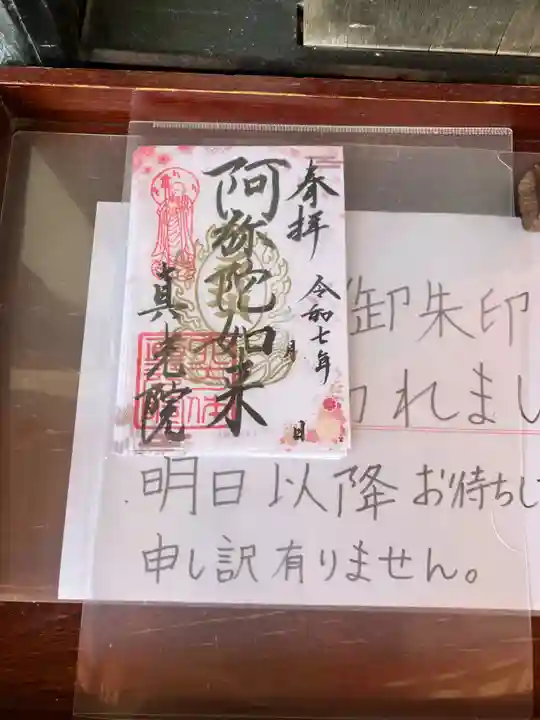 奉拝
令和七年
月
日
阿弥陀如来
真光院
御朱印
われまし
明日以降お待ちし
申し訳有りません。